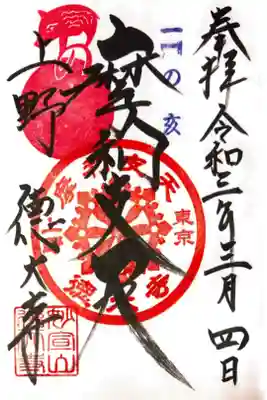 奉拝 令和三年三月四日
の亥
摩利支天
東京
上野
徳大寺
妙宣山
徳大寺